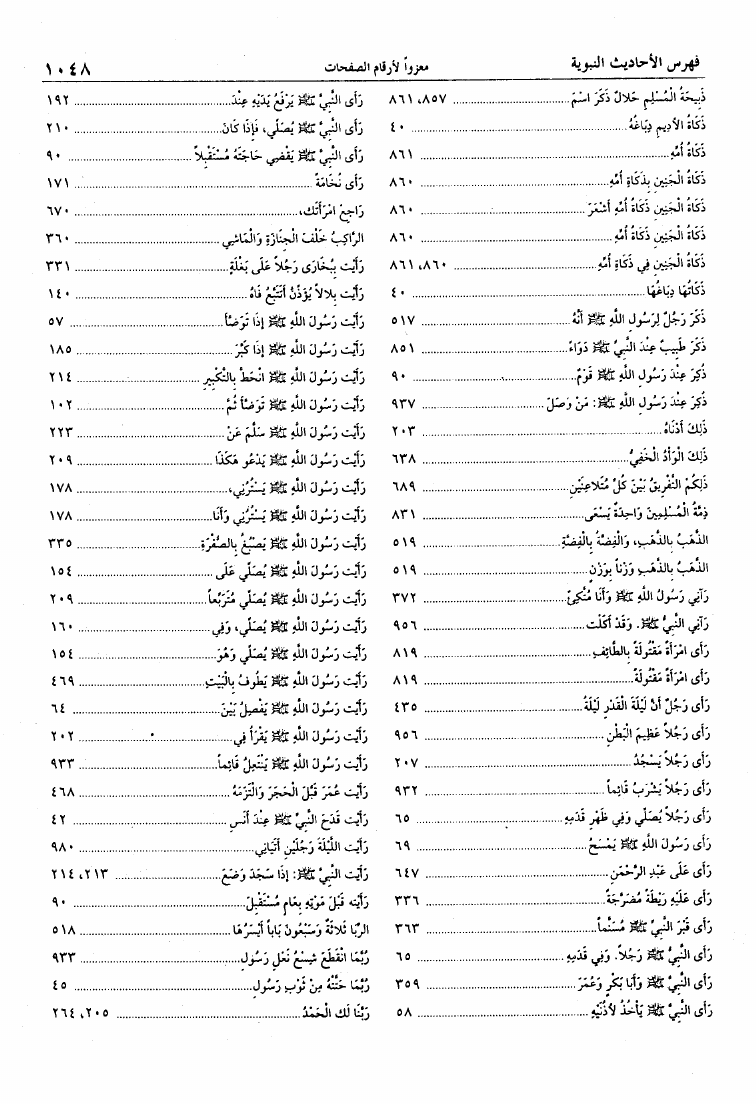 فهرس الأحاديث النبوية معزواً لأرقام الصفحات ١٠٤٨
ذَبِيحَةُ الْمُسْلِمِ حَلالٌ ذَكَرَ اسْمَ ........ ٨٥٧، ٨٦١
ذَكَاةُ الأَدِيمِ دِبَاغُهُ ........ ٤٠
ذَكَاةُ أُمِّهِ ........ ٨٦١
ذَكَاةُ الْجَنِينِ بِذَكَاةِ أُمِّهِ ........ ٨٦٠
ذَكَاةُ الْجَنِينِ ذَكَاةُ أُمِّهِ أَشْعَرَ ........ ٨٦٠
ذَكَاةُ الْجَنِينِ ذَكَاةُ أُمِّهِ ........ ٨٦٠
ذَكَاةُ الْجَنِينِ فِي ذَكَاةِ أُمِّهِ ........ ٨٦٠، ٨٦١
ذَكَاتُهَا دِبَاغُهَا ........ ٤٠
ذَكَرَ رَجُلٌ لِرَسُولِ اللَّهِ ﷺ أَنَّهُ ........ ٥١٧
ذَكَرَ طَبِيبٌ عِنْدَ النَّبِيِّ ﷺ دَوَاءً ........ ٨٥١
ذُكِرَ عِنْدَ رَسُولِ اللَّهِ ﷺ قَوْمٌ ........ ٩٠
ذُكِرَ عِنْدَ رَسُولِ اللَّهِ ﷺ: مَنْ وَصَلَ ........ ٩٣٧
ذَلِكَ أَدْنَاهُ ........ ٢٠٣
ذَلِكَ الْوَأْدُ الْخَفِيُّ ........ ٦٣٨
ذَلِكُمُ التَّفْرِيقُ بَيْنَ كُلِّ مُتَلاعِنَيْنِ ........ ٦٨٩
ذِمَّةُ الْمُسْلِمِينَ وَاحِدَةٌ يَسْعَى ........ ٨٣١
الذَّهَبُ بِالذَّهَبِ، وَالْفِضَّةُ بِالْفِضَّةِ ........ ٥١٩
الذَّهَبُ بِالذَّهَبِ وَزْناً بِوَزْنٍ ........ ٥١٩
رَآنِي رَسُولُ اللَّهِ ﷺ وَأَنَا مُتَّكِئٌ ........ ٣٧٢
رَآنِي النَّبِيُّ ﷺ. وَقَدْ أَكَلْت ........ ٩٥٦
رَأَى امْرَأَةً مَقْتُولَةً بِالطَّائِفِ ........ ٨١٩
رَأَى امْرَأَةً مَقْتُولَةً ........ ٨١٩
رَأَى رَجُلٌ أَنَّ لَيْلَةَ الْقَدْرِ لَيْلَةُ ........ ٤٣٥
رَأَى رَجُلاً عَظِيمَ الْبَطْنِ ........ ٩٥٦
رَأَى رَجُلاً يَسْجُدُ ........ ٢٠٧
رَأَى رَجُلاً يَشْرَبُ قَائِماً ........ ٩٣٢
رَأَى رَجُلاً يُصَلِّي وَفِي ظَهْرِ قَدَمِهِ ........ ٦٥
رَأَى رَسُولَ اللَّهِ ﷺ يَمْسَحُ ........ ٦٩
رَأَى عَلَى عَبْدِ الرَّحْمَنِ ........ ٦٤٧
رَأَى عَلَيْهِ رَيْطَةً مُضَرَّجَةً ........ ٣٣٦
رَأَى قَبْرَ النَّبِيِّ ﷺ مُسَنَّماً ........ ٣٦٣
رَأَى النَّبِيُّ ﷺ رَجُلاً. وَفِي قَدَمِهِ ........ ٦٥
رَأَى النَّبِيَّ ﷺ وَأَبَا بَكْرٍ وَعُمَرَ ........ ٣٥٩
رَأَى النَّبِيَّ ﷺ يَأْخُذُ لأُذُنَيْهِ ........ ٥٨
رَأَى النَّبِيَّ ﷺ يَرْفَعُ يَدَيْهِ عِنْدَ ........ ١٩٢
رَأَى النَّبِيَّ ﷺ يُصَلِّي، فَإِذَا كَانَ ........ ٢١٠
رَأَى النَّبِيَّ ﷺ يَقْضِي حَاجَتَهُ مُسْتَقْبِلاً ........ ٩٠
رَأَى نُخَامَةً ........ ١٧١
رَاجِعِ امْرَأَتَك، ........ ٦٧٠
الرَّاكِبُ خَلْفَ الْجِنَازَةِ وَالْمَاشِي ........ ٣٦٠
رَأَيْت بِبُخَارَى رَجُلاً عَلَى بَغْلَةٍ ........ ٣٣١
رَأَيْت بِلالاً يُؤَذِّنُ أَتَتَبَّعُ فَاهُ ........ ١٤٠
رَأَيْت رَسُولَ اللَّهِ ﷺ إذَا تَوَضَّأَ ........ ٥٧
رَأَيْت رَسُولَ اللَّهِ ﷺ إِذَا كَبَّرَ ........ ١٨٥
رَأَيْت رَسُولَ اللَّهِ ﷺ انْحَطَّ بِالتَّكْبِيرِ ........ ٢١٤
رَأَيْت رَسُولَ اللَّهِ ﷺ تَوَضَّأَ ثُمَّ ........ ١٠٢
رَأَيْت رَسُولَ اللَّهِ ﷺ سَلَّمَ عَنْ ........ ٢٢٣
رَأَيْت رَسُولَ اللَّهِ ﷺ يَدْعُو هَكَذَا ........ ٢٠٩
رَأَيْت رَسُولَ اللَّهِ ﷺ يَسْتُرُنِي، ........ ١٧٨
رَأَيْت رَسُولَ اللَّهِ ﷺ يَسْتُرُنِي وَأَنَا ........ ١٧٨
رَأَيْت رَسُولَ اللَّهِ ﷺ يَصْبُغُ بِالصُّفْرَةِ ........ ٣٣٥
رَأَيْت رَسُولَ اللَّهِ ﷺ يُصَلِّي عَلَى ........ ١٥٤
رَأَيْت رَسُولَ اللَّهِ ﷺ يُصَلِّي مُتَرَبِّعاً ........ ٢٠٩
رَأَيْت رَسُولَ اللَّهِ ﷺ يُصَلِّي، وَفِي ........ ١٦٠
رَأَيْت رَسُولَ اللَّهِ ﷺ يُصَلِّي وَهُوَ ........ ١٥٤
رَأَيْت رَسُولَ اللَّهِ ﷺ يَطُوفُ بِالْبَيْتِ ........ ٤٦٩
رَأَيْت رَسُولَ اللَّهِ ﷺ يَفْصِلُ بَيْنَ ........ ٦٤
رَأَيْت رَسُولَ اللَّهِ ﷺ يَقْرَأُ فِي ........ ٢٠٢
رَأَيْت رَسُولَ اللَّهِ ﷺ يَنْتَعِلُ قَائِماً ........ ٩٣٣
رَأَيْت عُمَرَ قَبَّلَ الْحَجَرَ وَالْتَزَمَهُ ........ ٤٦٨
رَأَيْت قَدَحَ النَّبِيِّ ﷺ عِنْدَ أَنَسٍ ........ ٤٢
رَأَيْت اللَّيْلَةَ رَجُلَيْنِ أَتَيَانِي ........ ٩٨٠
رَأَيْت النَّبِيَّ ﷺ: إِذَا سَجَدَ وَضَعَ ........ ٢١٣، ٢١٤
رَأَيْته قَبْلَ مَوْتِهِ بِعَامٍ مُسْتَقْبِلَ ........ ٩٠
الرِّبَا ثَلاثَةٌ وَسَبْعُونَ بَاباً أَيْسَرُهَا ........ ٥١٨
رُبَّمَا انْقَطَعَ شِسْعُ نَعْلِ رَسُولِ ........ ٩٣٣
رُبَّمَا حَتَّتْهُ مِنْ ثَوْبِ رَسُولِ ........ ٤٥
رَبَّنَا لَك الْحَمْدُ ........ ٢٠٥، ٢٦٤